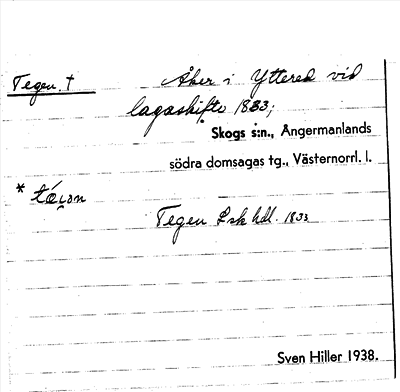 Tegen. †
Åker i Yttered vid
lagaskifte 1833;
Skogs s:n., Ångermanlands
södra domsagas tg., Västernorrl. l.
Tegen Lskhdl. 1833
Sven Hiller 1938.